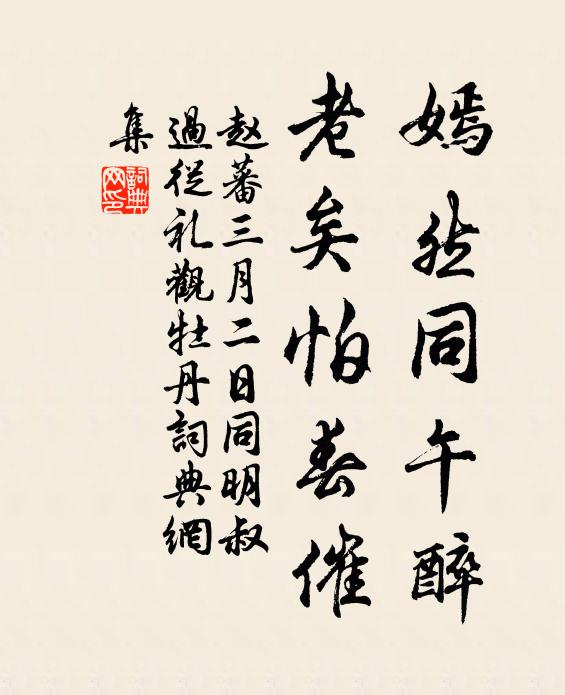 嫣然同午醉
老矣怕春催
赵蕃三月二日同明叔
過從礼觀牡丹詞典網
集
詞典網印